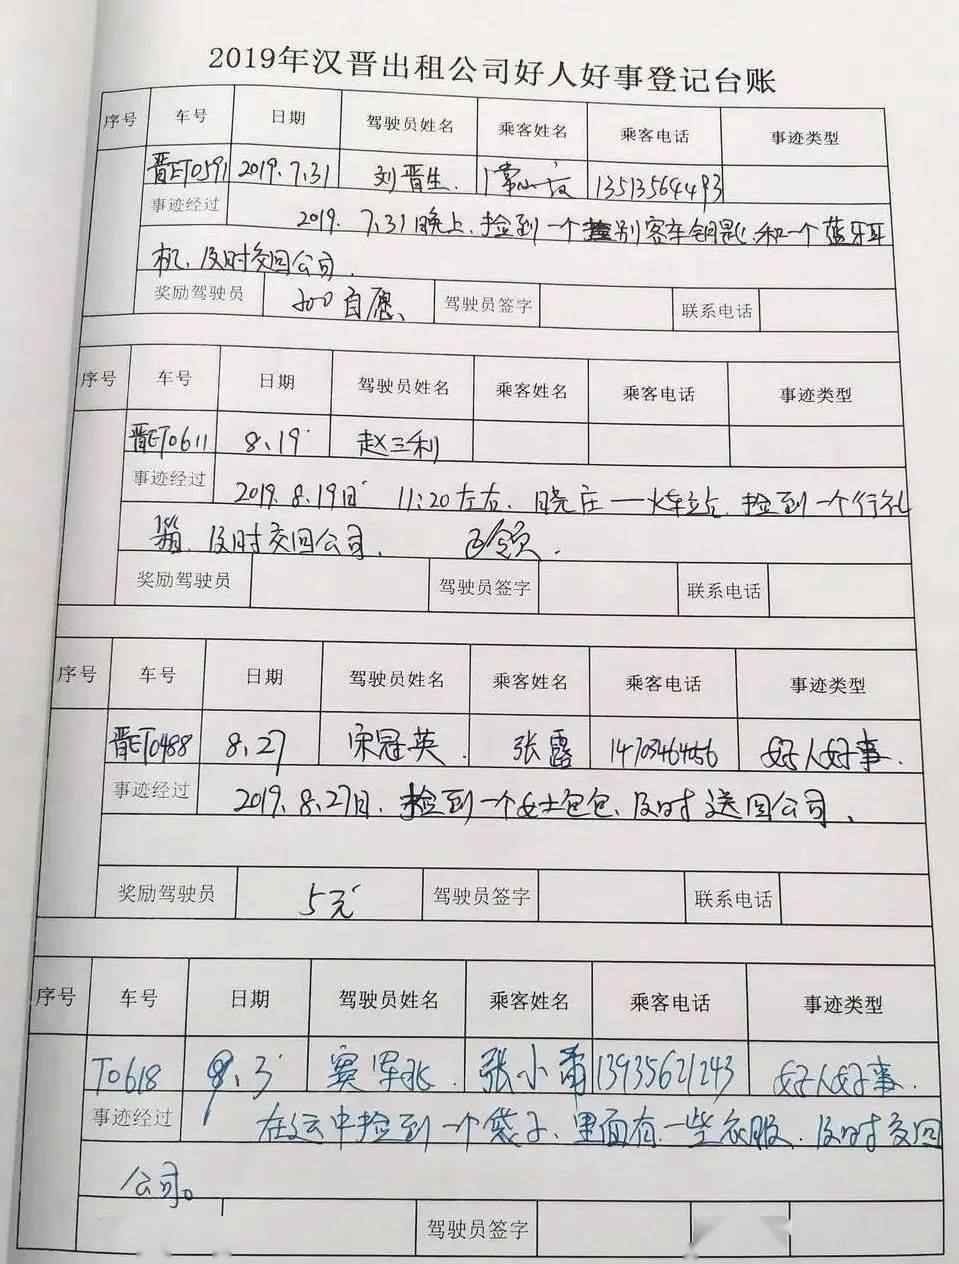 2019年汉晋出租公司好人好事登记台账
序号 车号 日期 驾驶员姓名 乘客姓名 乘客电话 事迹类型
晋ET0591 2019.7.31 刘晋生. 13513564493
事迹经过 2019. 7.31晚上.捡到一个别客车钥匙.和一个蓝牙耳
机、及时交回公司.
奖励驾驶员 自愿、 驾驶员签字 联系电话
序号 车号 日期 驾驶员姓名 乘客姓名 乘客电话 事迹类型
晋ET0611 8、19 赵三利
事迹经过 2019.8.19日 11:20左右、晓庄——火车站.捡到一个行礼
箱、及时交回公司. 已领.
奖励驾驶员 驾驶员签字 联系电话
序号 车号 日期 驾驶员姓名 乘客姓名 乘客电话 事迹类型
晋ET0488 8.27 宋冠英. 张露 好人好事.
事迹经过 2019.8.27日.捡到一个女士包包、及时送回公司、
奖励驾驶员 5元 驾驶员签字 联系电话
序号 车号 日期 驾驶员姓名 乘客姓名 乘客电话 事迹类型
T0618 9.3 窦军兆. 张小 13935621243 好人好事.
事迹经过 在运中捡到一个袋子、里面有一些衣服、及时交回
公司。
驾驶员签字